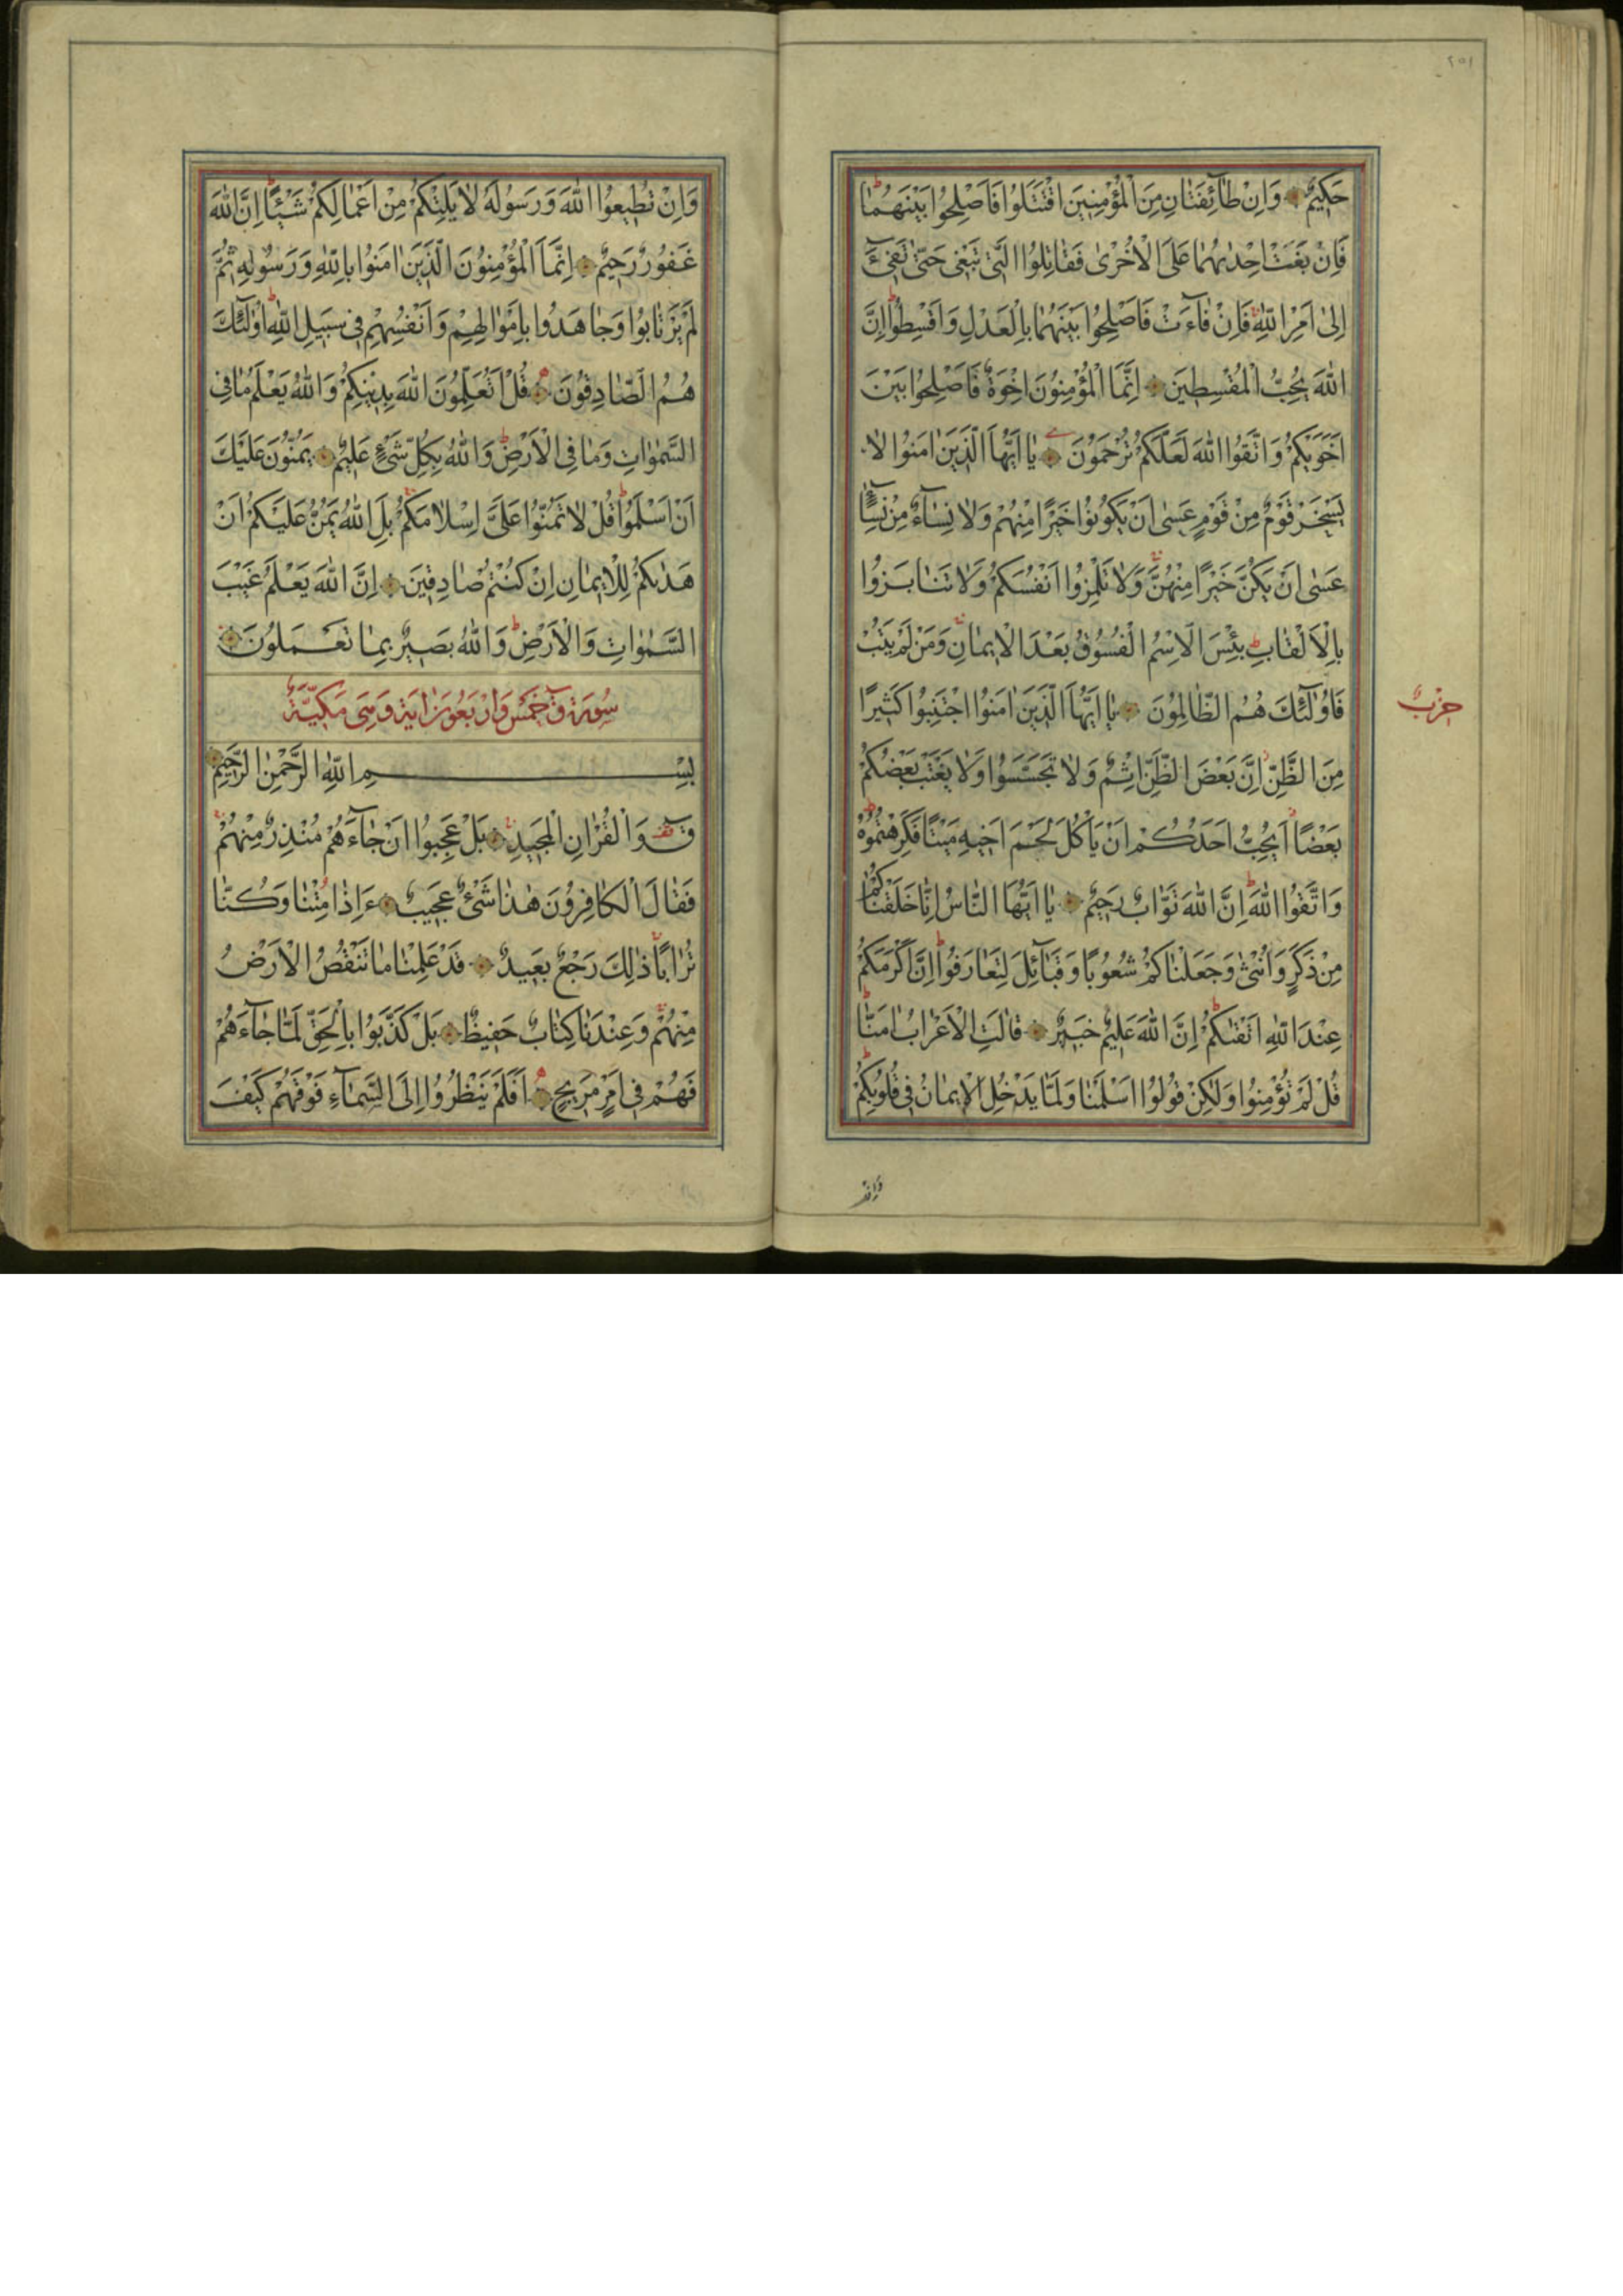 ٢٥١
حَكِيمٌ وَاِنْ طَآئِفَتَانِ مِنَ الْمُؤْمِنِينَ اقْتَتَلُوا فَاَصْلِحُوا بَيْنَهُمَا
فَاِنْ بَغَتْ اِحْدٰيهُمَا عَلَى الْاُخْرٰى فَقَاتِلُوا الَّتِى تَبْغِى حَتّٰى تَفِىٓءَ
اِلٰى اَمْرِ اللّٰهِ فَاِنْ فَآءَتْ فَاَصْلِحُوا بَيْنَهُمَا بِالْعَدْلِ وَاَقْسِطُوا اِنَّ
اللّٰهَ يُحِبُّ الْمُقْسِطِينَ اِنَّمَا الْمُؤْمِنُونَ اِخْوَةٌ فَاَصْلِحُوا بَيْنَ
اَخَوَيْكُمْ وَاتَّقُوا اللّٰهَ لَعَلَّكُمْ تُرْحَمُونَ يَا اَيُّهَا الَّذِينَ اٰمَنُوا لَا
يَسْخَرْ قَوْمٌ مِنْ قَوْمٍ عَسٰى اَنْ يَكُونُوا خَيْرًا مِنْهُمْ وَلَا نِسَآءٌ مِنْ نِسَآءٍ
عَسٰى اَنْ يَكُنَّ خَيْرًا مِنْهُنَّ وَلَا تَلْمِزُوا اَنْفُسَكُمْ وَلَا تَنَابَزُوا
بِالْاَلْقَابِ بِئْسَ الِاسْمُ الْفُسُوقُ بَعْدَ الْاِيمَانِ وَمَنْ لَمْ يَتُبْ
فَاُولٰٓئِكَ هُمُ الظَّالِمُونَ يَا اَيُّهَا الَّذِينَ اٰمَنُوا اجْتَنِبُوا كَثِيرًا
حزب
مِنَ الظَّنِّ اِنَّ بَعْضَ الظَّنِّ اِثْمٌ وَلَا تَجَسَّسُوا وَلَا يَغْتَبْ بَعْضُكُمْ
بَعْضًا اَيُحِبُّ اَحَدُكُمْ اَنْ يَأْكُلَ لَحْمَ اَخِيهِ مَيْتًا فَكَرِهْتُمُوهُ
وَاتَّقُوا اللّٰهَ اِنَّ اللّٰهَ تَوَّابٌ رَحِيمٌ يَا اَيُّهَا النَّاسُ اِنَّا خَلَقْنَاكُمْ
مِنْ ذَكَرٍ وَاُنْثٰى وَجَعَلْنَاكُمْ شُعُوبًا وَقَبَآئِلَ لِتَعَارَفُوا اِنَّ اَكْرَمَكُمْ
عِنْدَ اللّٰهِ اَتْقٰيكُمْ اِنَّ اللّٰهَ عَلِيمٌ خَبِيرٌ قَالَتِ الْاَعْرَابُ اٰمَنَّا
قُلْ لَمْ تُؤْمِنُوا وَلٰكِنْ قُولُوا اَسْلَمْنَا وَلَمَّا يَدْخُلِ الْاِيمَانُ فِى قُلُوبِكُمْ
وَاِنْ
وَاِنْ تُطِيعُوا اللّٰهَ وَرَسُولَهُ لَا يَلِتْكُمْ مِنْ اَعْمَالِكُمْ شَيْئًا اِنَّ اللّٰهَ
غَفُورٌ رَحِيمٌ اِنَّمَا الْمُؤْمِنُونَ الَّذِينَ اٰمَنُوا بِاللّٰهِ وَرَسُولِهِ ثُمَّ
لَمْ يَرْتَابُوا وَجَاهَدُوا بِاَمْوَالِهِمْ وَاَنْفُسِهِمْ فِى سَبِيلِ اللّٰهِ اُولٰٓئِكَ
هُمُ الصَّادِقُونَ قُلْ اَتُعَلِّمُونَ اللّٰهَ بِدِينِكُمْ وَاللّٰهُ يَعْلَمُ مَا فِى
السَّمٰوَاتِ وَمَا فِى الْاَرْضِ وَاللّٰهُ بِكُلِّ شَىْءٍ عَلِيمٌ يَمُنُّونَ عَلَيْكَ
اَنْ اَسْلَمُوا قُلْ لَا تَمُنُّوا عَلَىَّ اِسْلَامَكُمْ بَلِ اللّٰهُ يَمُنُّ عَلَيْكُمْ اَنْ
هَدٰيكُمْ لِلْاِيمَانِ اِنْ كُنْتُمْ صَادِقِينَ اِنَّ اللّٰهَ يَعْلَمُ غَيْبَ
السَّمٰوَاتِ وَالْاَرْضِ وَاللّٰهُ بَصِيرٌ بِمَا تَعْمَلُونَ
سُورَة قٓ خَمْس وَاَرْبَعُونَ اٰيَة وَهِىَ مَكِّيَّة
بِسْمِ اللّٰهِ الرَّحْمٰنِ الرَّحِيمِ
قٓ وَالْقُرْاٰنِ الْمَجِيدِ بَلْ عَجِبُوا اَنْ جَآءَهُمْ مُنْذِرٌ مِنْهُمْ
فَقَالَ الْكَافِرُونَ هٰذَا شَىْءٌ عَجِيبٌ ءَاِذَا مِتْنَا وَكُنَّا
تُرَابًا ذٰلِكَ رَجْعٌ بَعِيدٌ قَدْ عَلِمْنَا مَا تَنْقُصُ الْاَرْضُ
مِنْهُمْ وَعِنْدَنَا كِتَابٌ حَفِيظٌ بَلْ كَذَّبُوا بِالْحَقِّ لَمَّا جَآءَهُمْ
فَهُمْ فِى اَمْرٍ مَرِيجٍ اَفَلَمْ يَنْظُرُوا اِلَى السَّمَآءِ فَوْقَهُمْ كَيْفَ